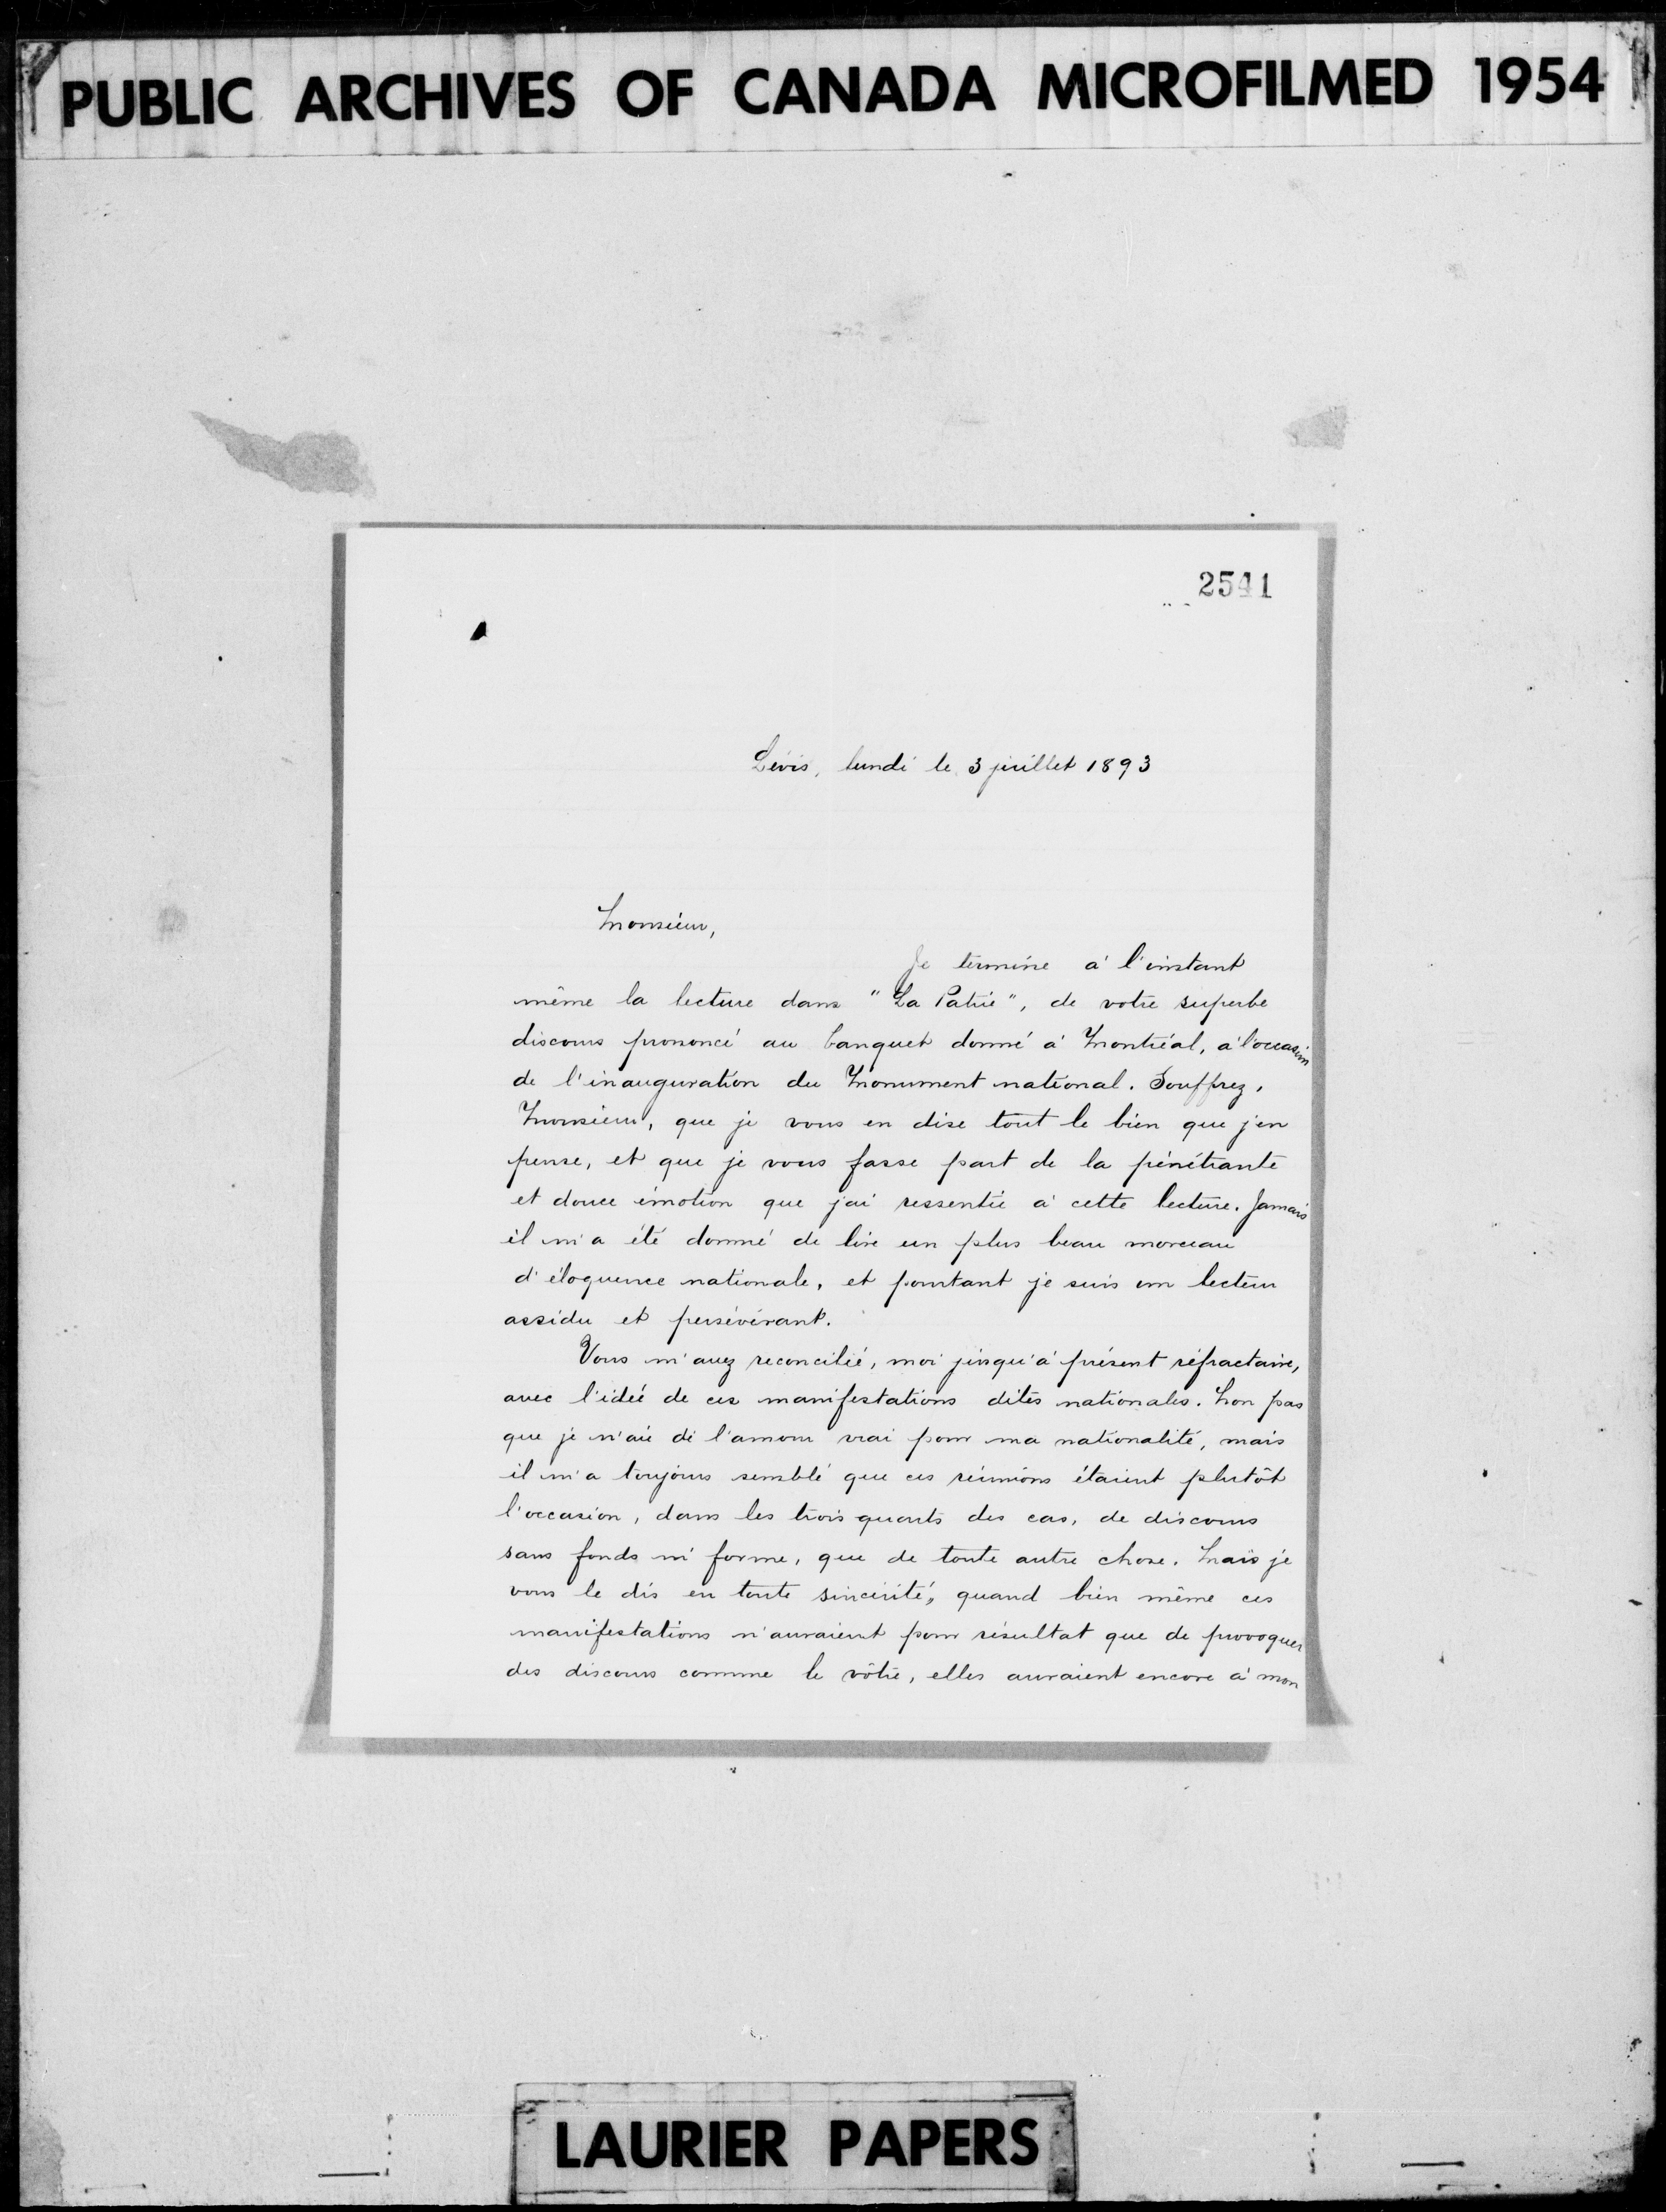 PUBLIC ARCHIVES OF CANADA MICROFILMED 1954
2541
Lévis, lundi le 3 juillet 1893
Monsieur,
Je termine à l'instant
même la lecture dans "La Patrie", de votre superbe
discours prononcé au banquet donné à Montréal, à l'occasion
de l'inauguration du Monument national. Souffrez,
Monsieur, que je vous en dise tout le bien que j'en
pense, et que je vous fasse part de la pénétrante
et douce émotion que j'ai ressentie à cette lecture. Jamais
il m'a été donné de lire un plus beau morceau
d'éloquence nationale, et pourtant je suis un lecteur
assidu et persévérant.
Vous m'avez reconcilié, moi jusqu'à présent réfractaire,
avec l'idée de ces manifestations dites nationales. Non pas
que je n'aie de l'amour vrai pour ma nationalité, mais
il m'a toujours semblé que ces réunions étaient plutôt
l'occasion, dans les trois quarts des cas, de discours
sans fonds ni forme, que de toute autre chose. Mais je
vous le dis en toute sincérité, quand bien même ces
manifestations n'auraient pour résultat que de provoquer
des discours comme le vôtre, elles auraient encore à mon
LAURIER PAPERS